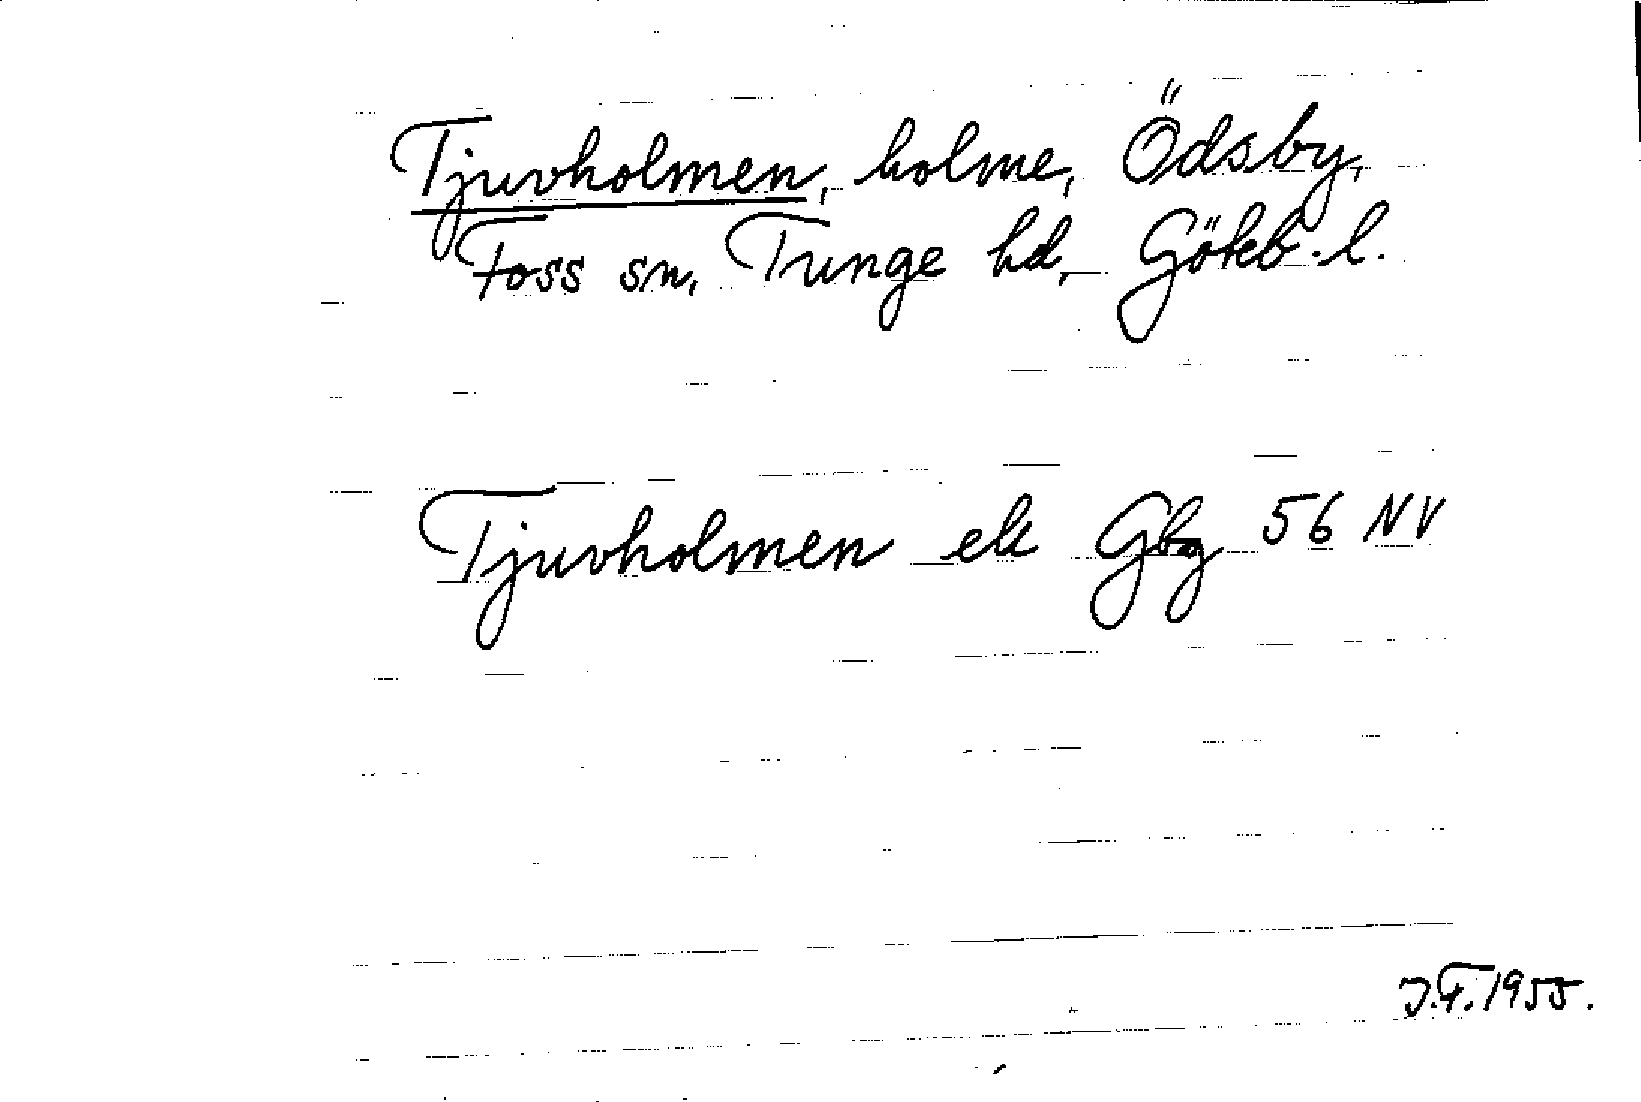 Tjuvholmen, holme, Ödsby,
Foss sn, Tunge hd, Göteb. l.
Tjuvholmen ek Gbg 56 NV
J.F. 1955.